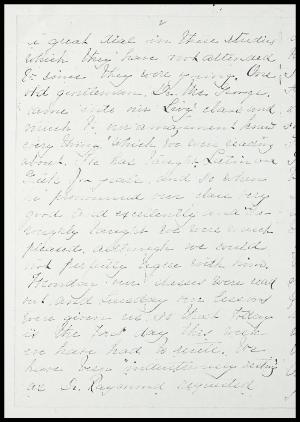 2
a great deal in these studies
which they have not attended
to since they were young. One
old gentleman, Dr. Mc George,
came into our Livy class and
much to our amazement knew
every thing which we were reading
about. He has taught Latin and
Greek for years, and so when
he pronounced our class very
good and excellently and tho-
roughly taught we were much
pleased, although we could
not perfectly agree with him.
Monday our classes were read
out and Tuesday our lessons
were given us so that today
is the first day this week
we have had to write. We
have been
as Dr. Raymond requested